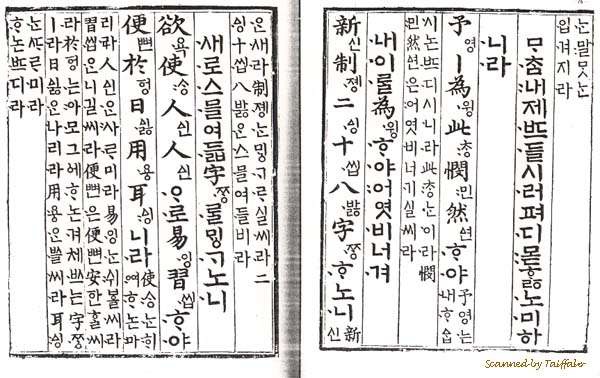 는말ᄆᆞᆺ는
입겨지라
ᄆᆞᄎᆞᆷ내제ᄠᅳ들시러펴디몯ᄒᆞᇙ노미하
니라
予영ㅣ為윙此ᄎᆞᆼ憫민然ᅀᅧᆫᄒᆞ야予영는
내ᄒᆞᅀᆞᆸ
시논ᄠᅳ디시니라此ᄎᆞᆼ는이라憫
민然ᅀᅧᆫ은어엿비너기실씨라
내이ᄅᆞᆯ為윙ᄒᆞ야어엿비너겨
新신制졩二ᅀᅵᆼ十씹八바ᇙ字ᄍᆞᆼᄒᆞ노니新
신
은새라制졩는ᄆᆡᇰᄀᆞᄅᆞ실씨라二
ᅀᅵᆼ十씹八바ᇙ은스믈여들비라
새로스믈여듧字ᄍᆞᆼᄅᆞᆯᄆᆡᇰᄀᆞ노니
欲욕使ᄉᆞᆼ人ᅀᅵᆫ人ᅀᅵᆫᄋᆞ로易잉習씹ᄒᆞ야
便뼌於ᅙᅥᆼ日ᅀᅵᇙ用용耳ᅀᅵᆼ니라使ᄉᆞᆼ는ᄒᆡ
여ᄒᆞ논마
리라人ᅀᅵᆫ은사ᄅᆞ미라易잉는쉬ᄫᅳᆯ씨라
習씹은니길씨라便뼌은便뼌安ᅙᅡᆫᄒᆞᆯ씨
라於ᅙᅥᆼ는아모그ᅌᅦᄒᆞ논겨체ᄡᅳ는字ᄍᆞᆼ
ㅣ라日ᅀᅵᇙ은나리라用용은ᄡᅳᆯ씨라耳ᅀᅵᆼ
는ᄯᆞᄅᆞ미라
ᄒᆞ논ᄠᅳ디라
Scanned by Taiffalo